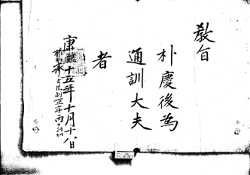 敎旨
朴慶後為
通訓大夫
者
康熙十五年十月十八日